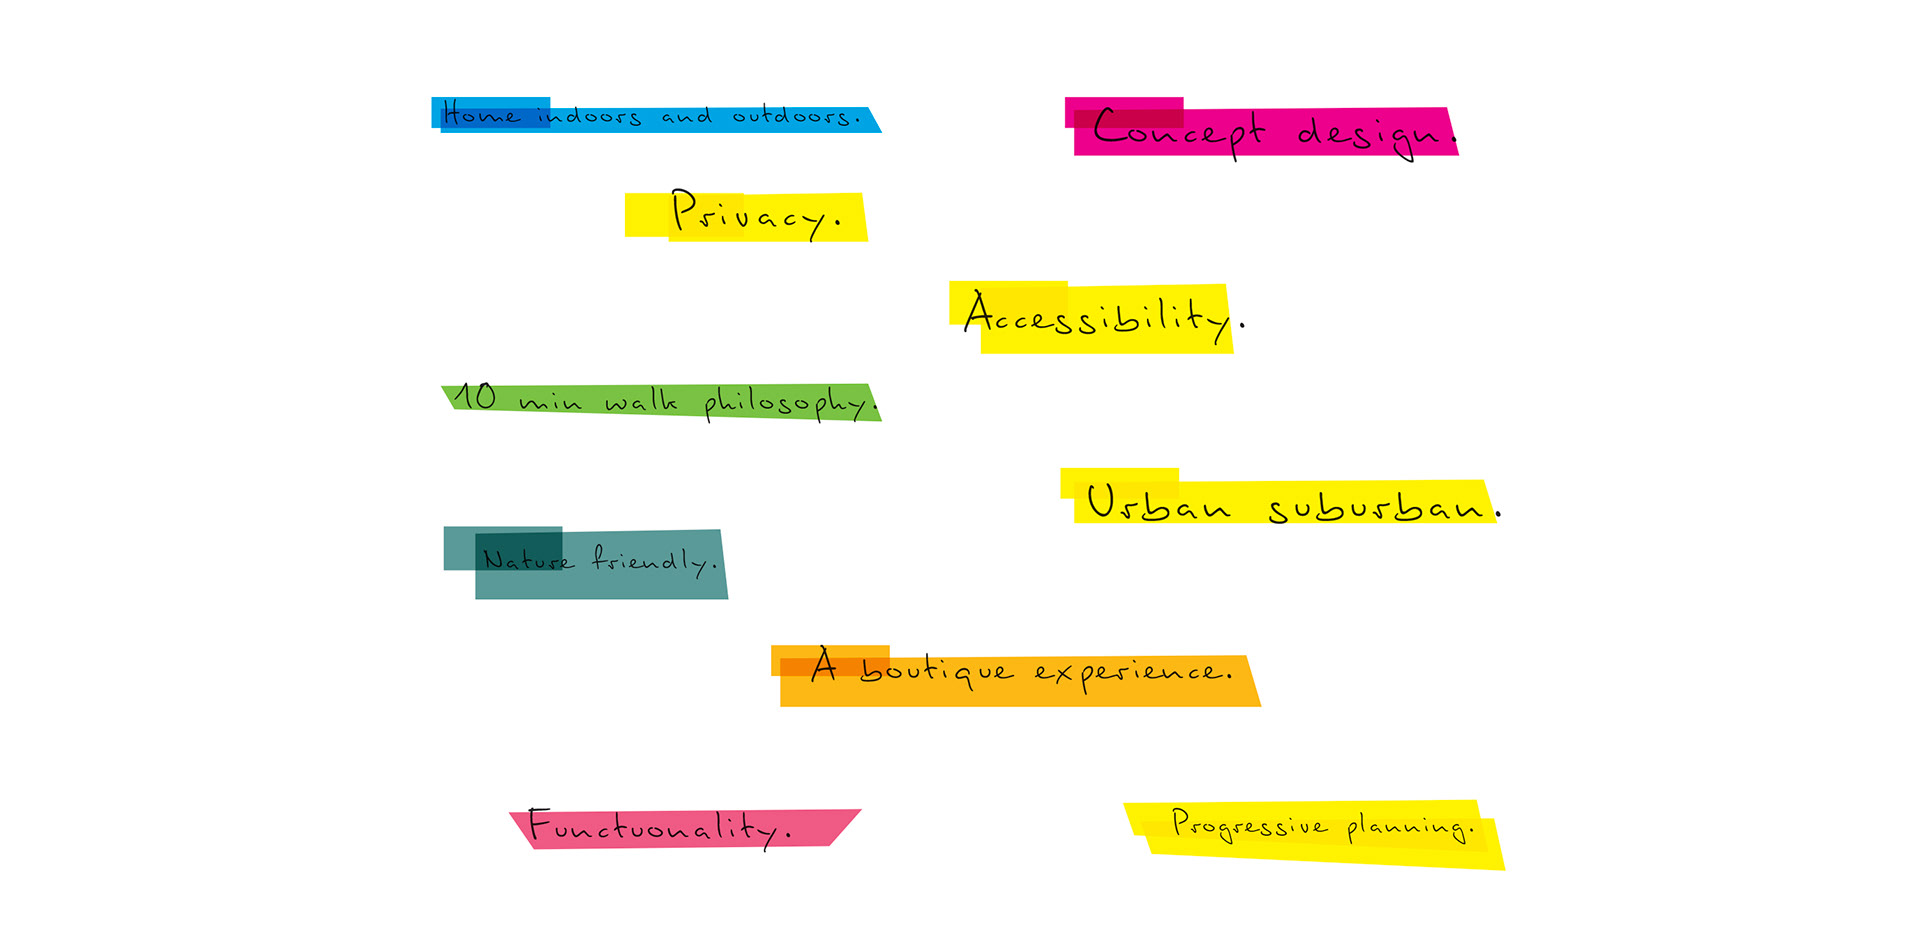 Home indoors and outdoors.
Concept design.
Privacy.
Accessibility.
10 min walk philosophy.
Urban suburban.
Nature friendly.
A boutique experience.
Functuonality.
Progressive planning.